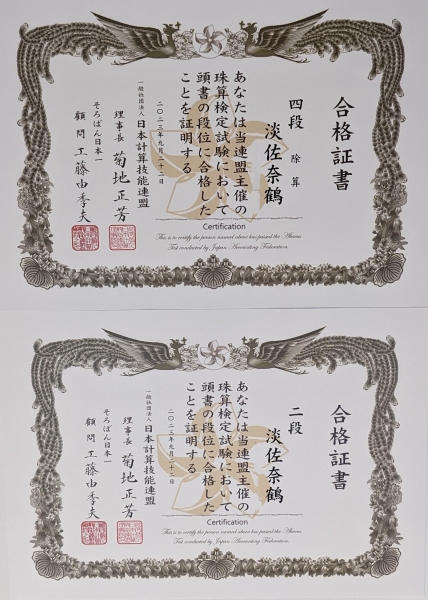 合格証書
四段 除算
淡佐奈鶴
あなたは当連盟主催の
珠算検定試験において
頭書の段位に合格した
ことを証明する
二〇二三年九月二十二日
一般社団法人 日本計算技能連盟
理事長 菊地正芳
そろばん日本一
顧問 工藤由季夫
Certification
This is to certify the person named above has passed the Abacus
Test conducted by Japan Accounting Federation.
合格証書
二段
淡佐奈鶴
あなたは当連盟主催の
珠算検定試験において
頭書の段位に合格した
ことを証明する
二〇二三年九月二十二日
一般社団法人 日本計算技能連盟
理事長 菊地正芳
そろばん日本一
顧問 工藤由季夫
Certification
This is to certify the person named above has passed the Abacus
Test conducted by Japan Accounting Federation.